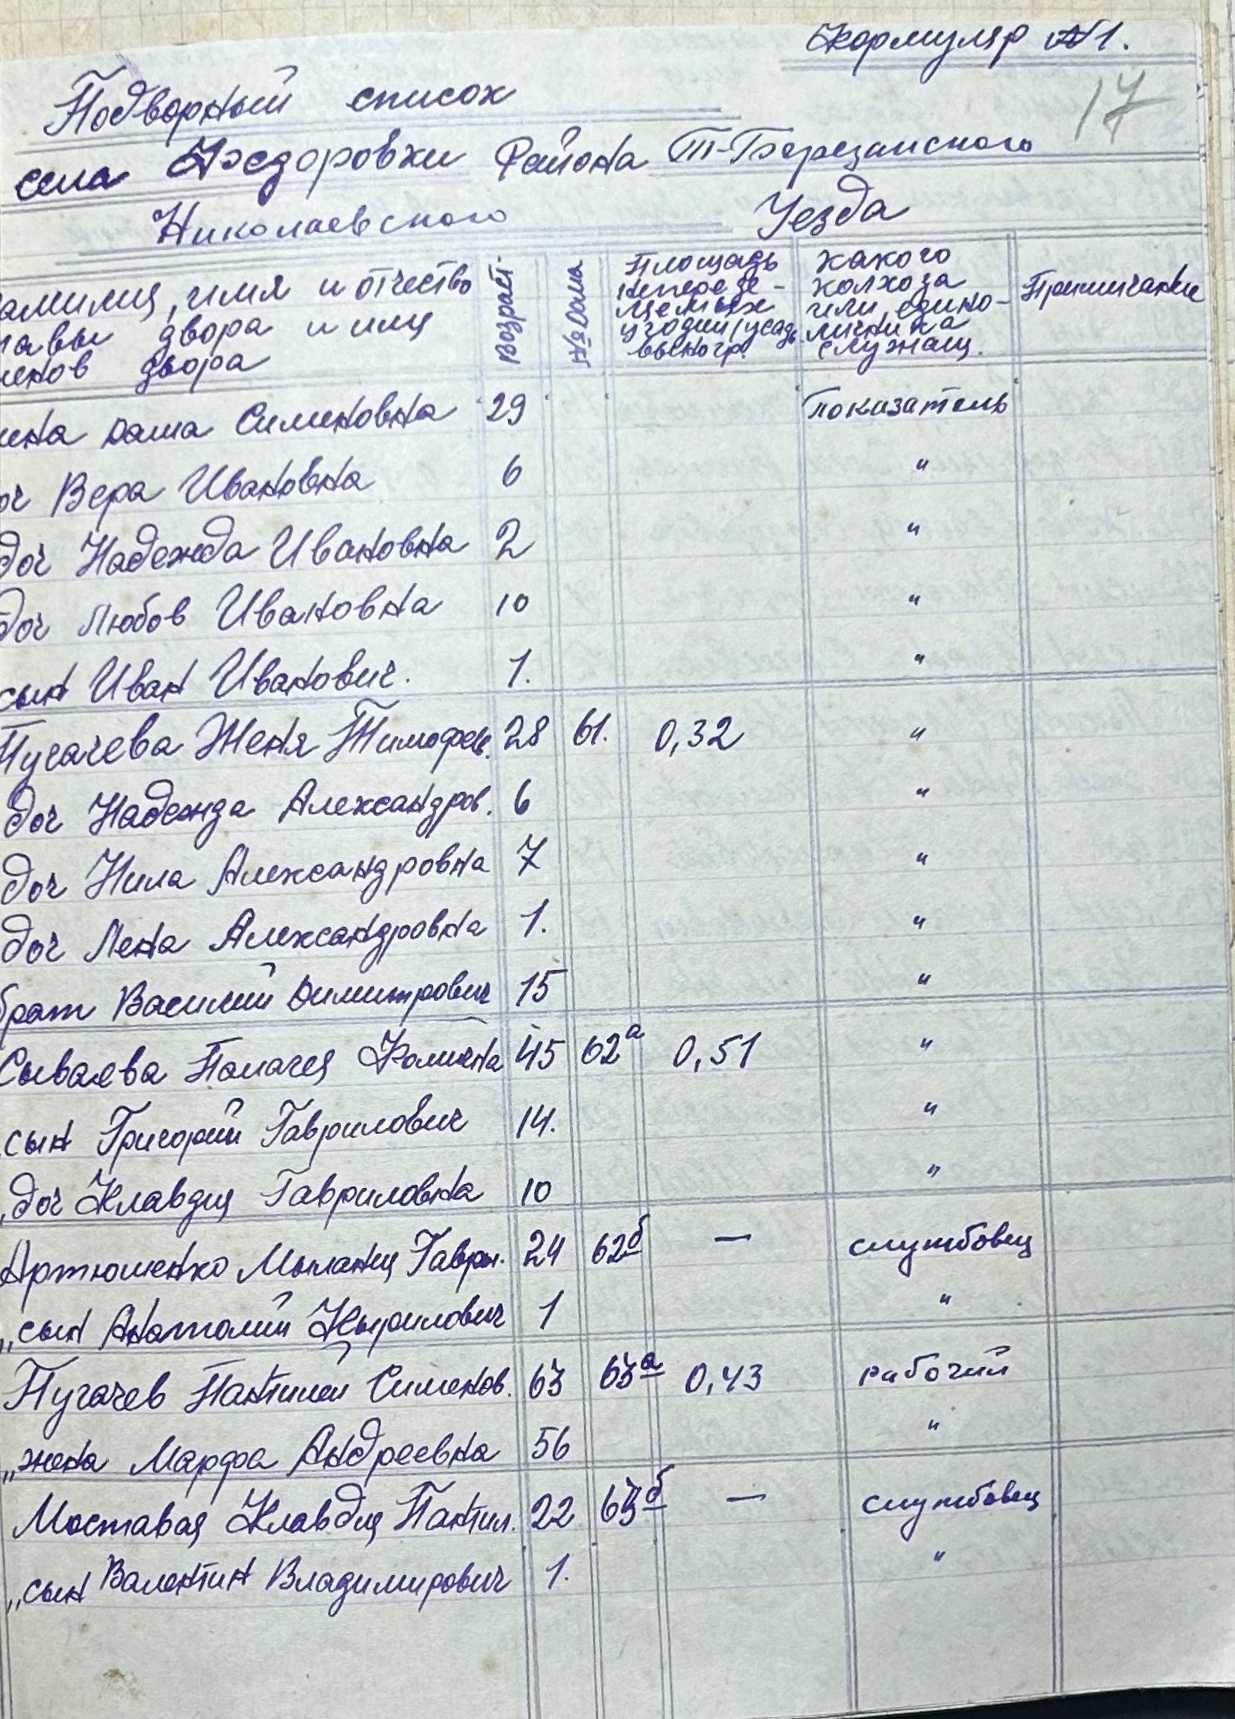 Формуляр №1.
17
Подворный список
села Федоровки Района Т-Березанского
Николаевского Уезда
амилия, имя и отчество
лавы двора и или
ленов двора
Возраст
№ дома
Площадь
непереде-
щемых
угодий/усад
виногр.
какого
колхоза
или едино-
личника
служащ.
Примичание
ена Даша Сименовна 29 показатель
оч Вера Ивановна 6 "
доч Надежда Ивановна 2 "
доч Любов Ивановна 10 "
сын Иван Иванович. 1. "
Пугачева Женя Тимофее. 28 61. 0,32 "
доч Надежда Александров. 6 "
доч Нила Александровна 7 "
доч Лена Александровна 1. "
брат Василий Димитрович 15 "
Сываева Палагея 45 62а 0,51 "
сын Григорий Гаврилович 14. "
„доч Клавдия Гавриловна 10 "
Артюшенко Мылания Гаври. 24 62б — службовец
„сын Анатолий Кырилович 1 "
Пугачев Пантилей Сименов. 63 63а 0,43 рабочий
„жена Марфа Андреевна 56 "
Моставая Клавдия Пантил. 22 63б — службовец
„сын Валентин Владимирович 1. "